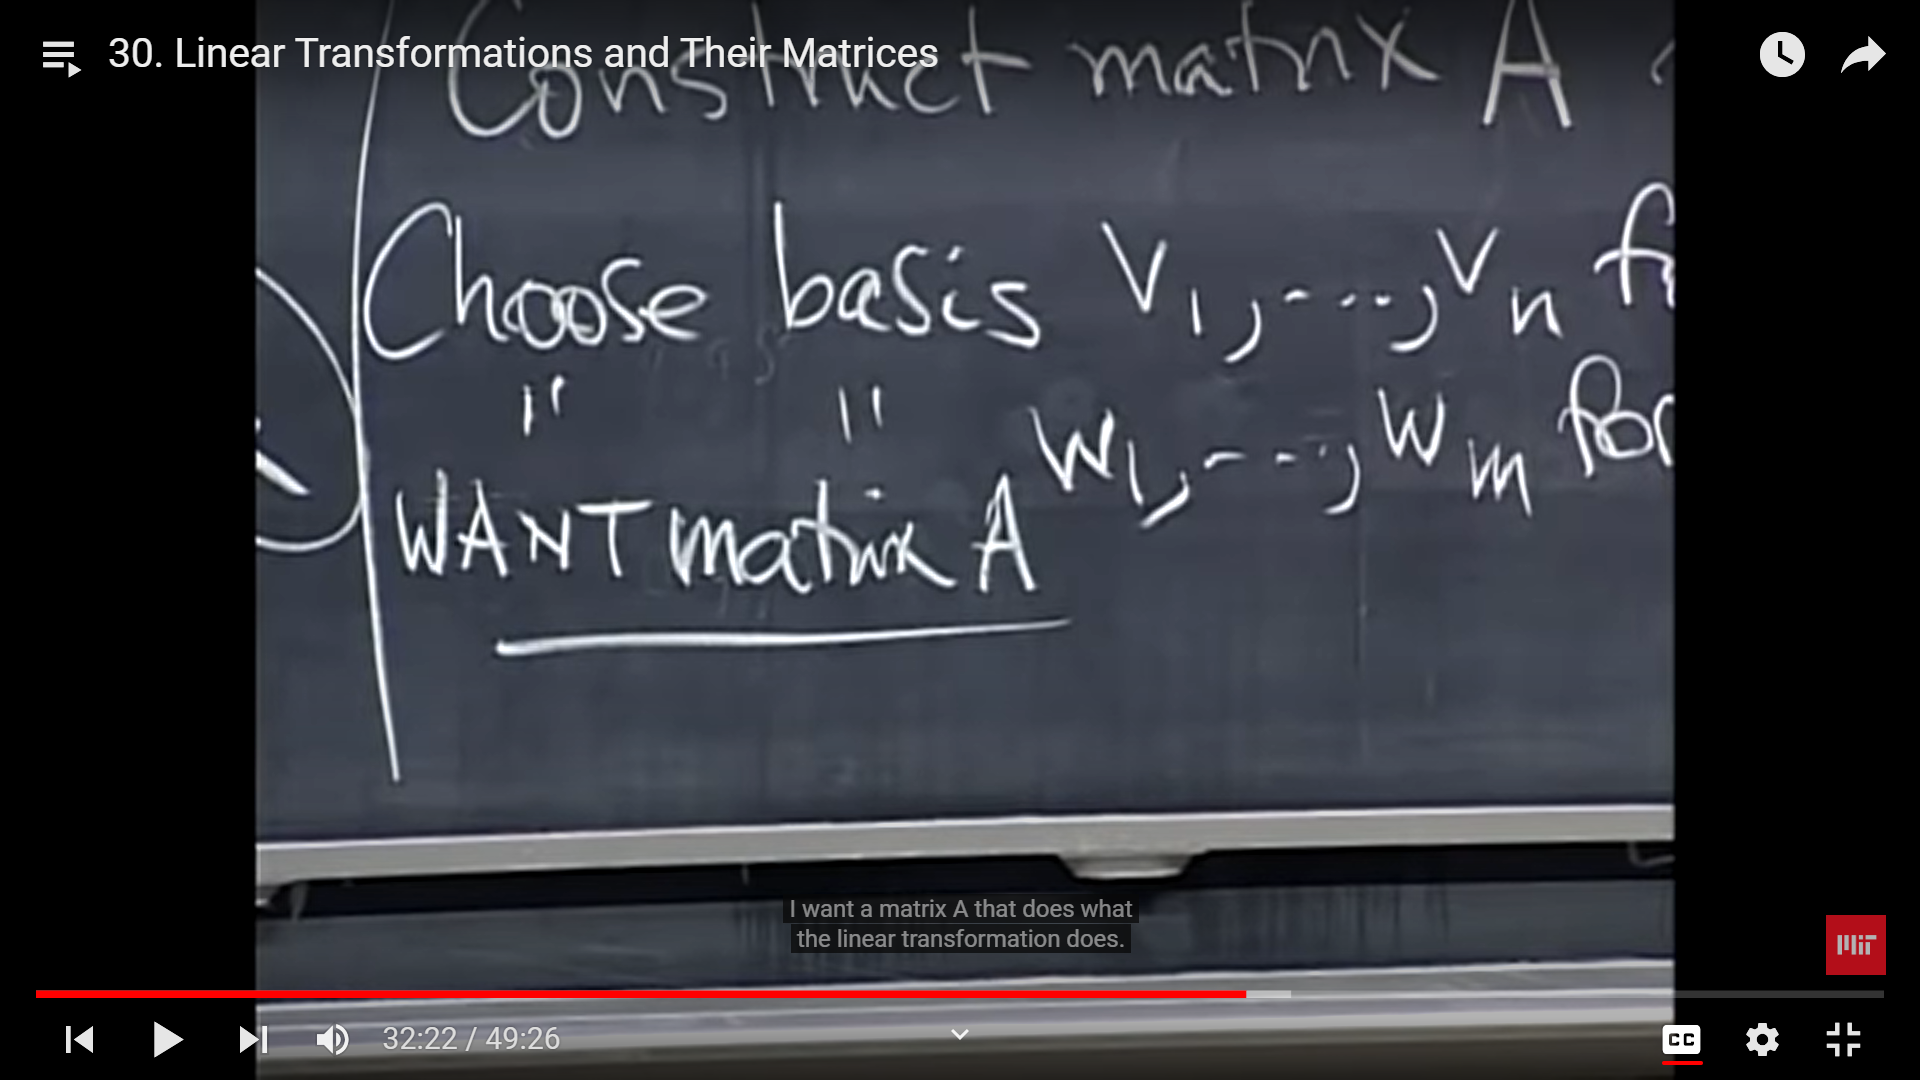 30. Linear Transformations and Their Matrices
Construct matrix A
Choose basis v1,---,vn
" " w1,---,wm for
WANT matrix A
I want a matrix A that does what
the linear transformation does.
MIT
32:22 / 49:26
CC